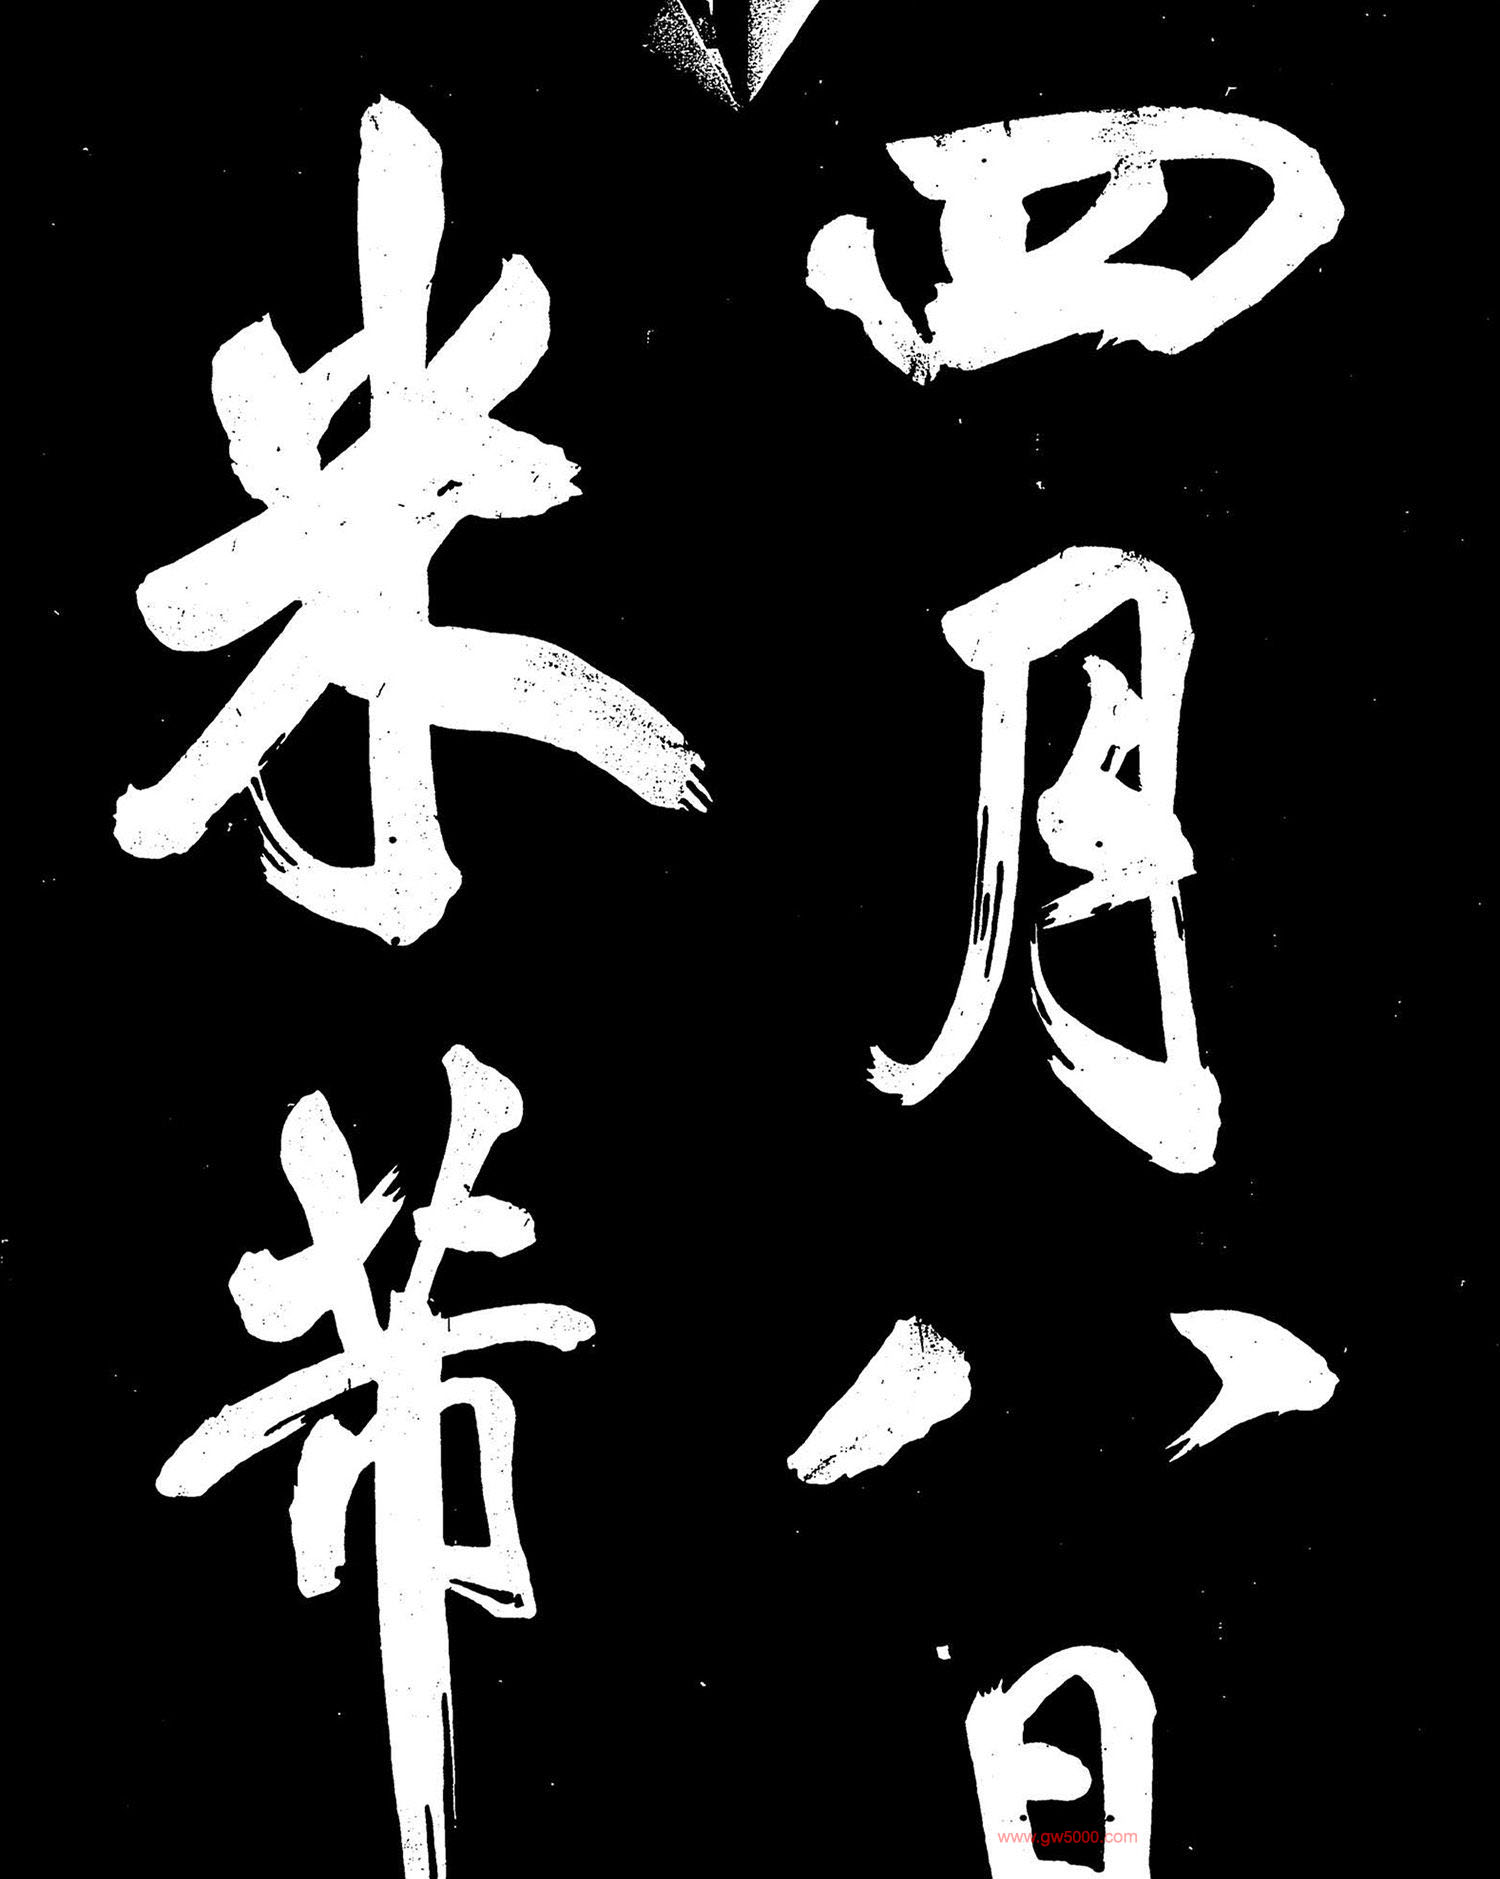 四月八日
米芾
www.gw5000.com